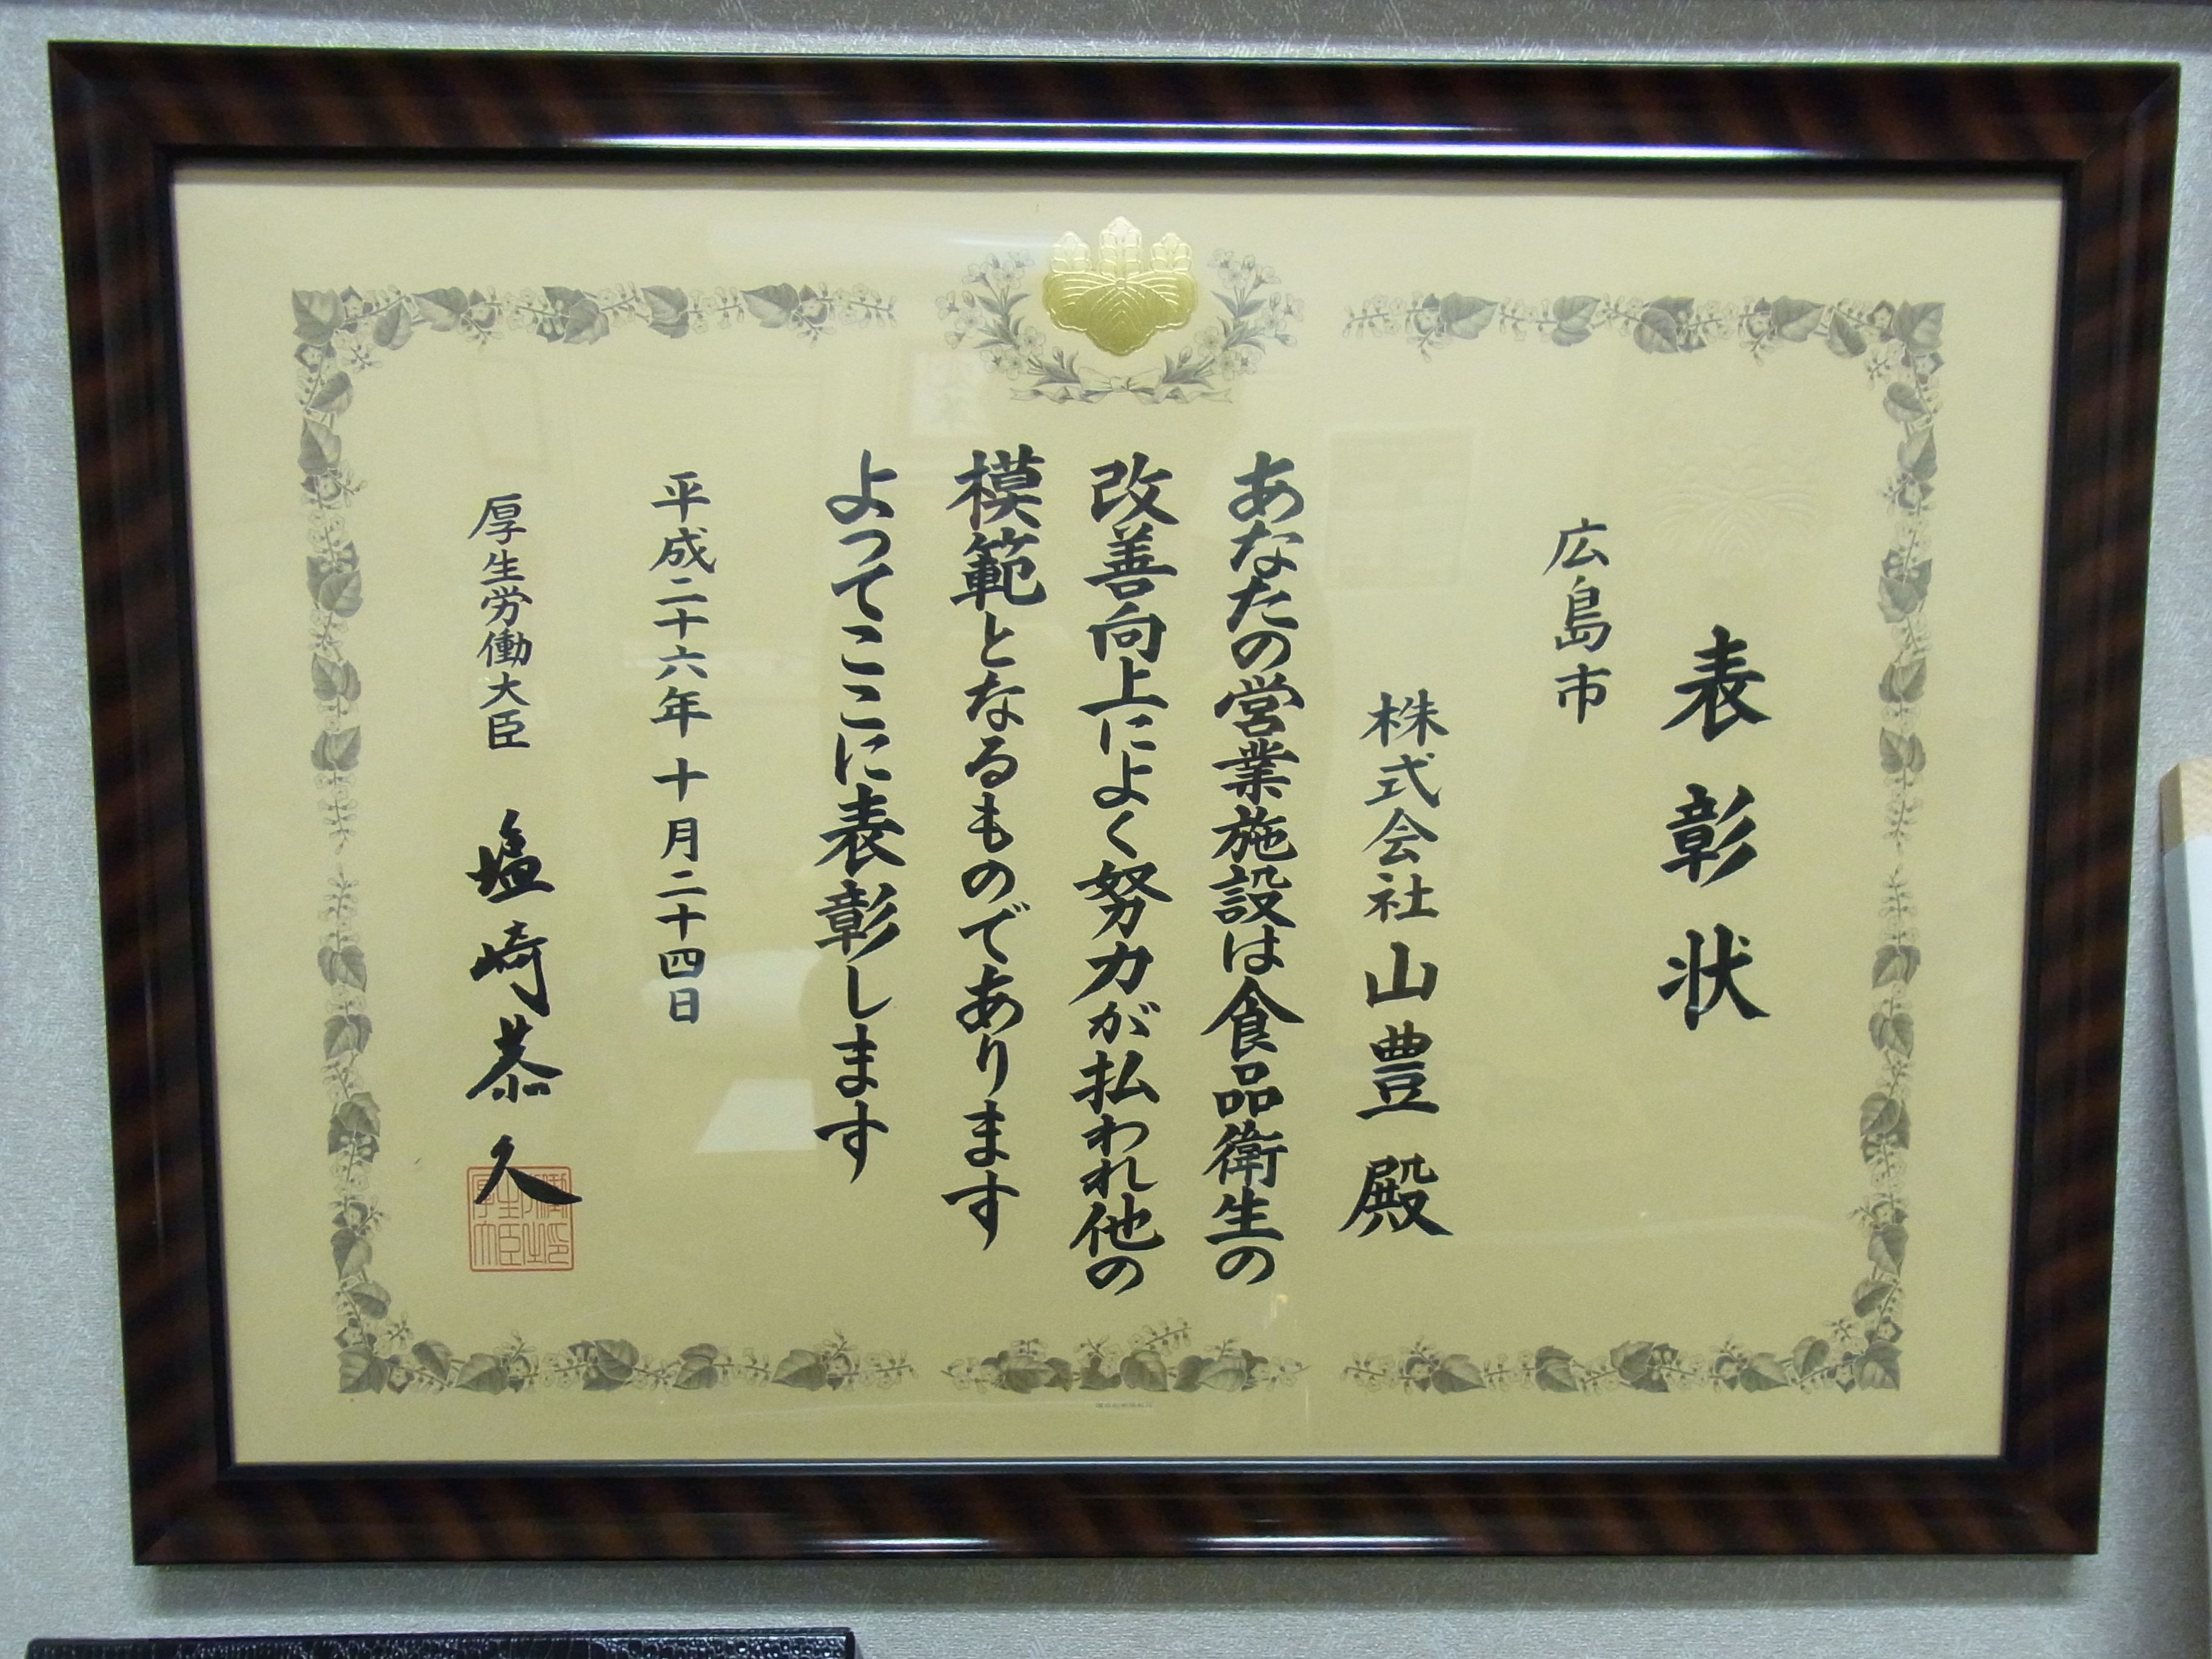 表彰状
広島市
株式会社山豊殿
あなたの営業施設は食品衛生の
改善向上によく努力が払われ他の
模範となるものであります
よってここに表彰します
平成二十六年十月二十四日
厚生労働大臣 塩崎恭久